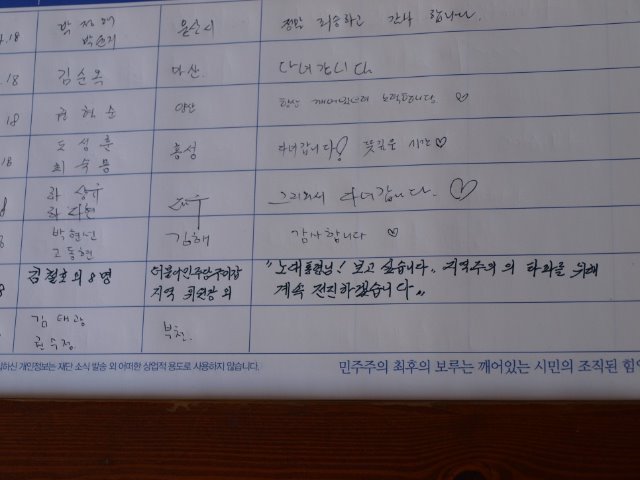 .18 박 울산시 정말 죄송하고 감사 합니다.
박
.18 김순옥 마산. 다녀갑니다.
18 현순 양산 항상 깨어있는시민 노력합니다 ♡
18 도성훈 홍성 다녀갑니다! 뜻깊은 시간 ♡
최숙
8 하 그리워서 다녀갑니다. ♡
하
8 박현선 김해 감사합니다 ♡
고동현
8 김철호외 8명 더불어민주당 구미갑 "노대통령님! 보고 싶습니다. 지역주의의 타파를 위해
지역 위원장 외 계속 전진하겠습니다"
김태광 부천.
권수정
하신 개인정보는 재단 소식 발송 외 어떠한 상업적 용도로 사용하지 않습니다. 민주주의 최후의 보루는 깨어있는 시민의 조직된 힘